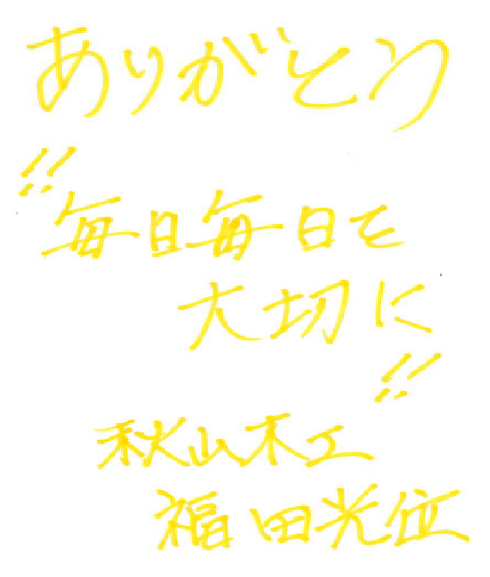 ありがとう
!!
毎日毎日を
大切に
!!
秋山木工
福田光位